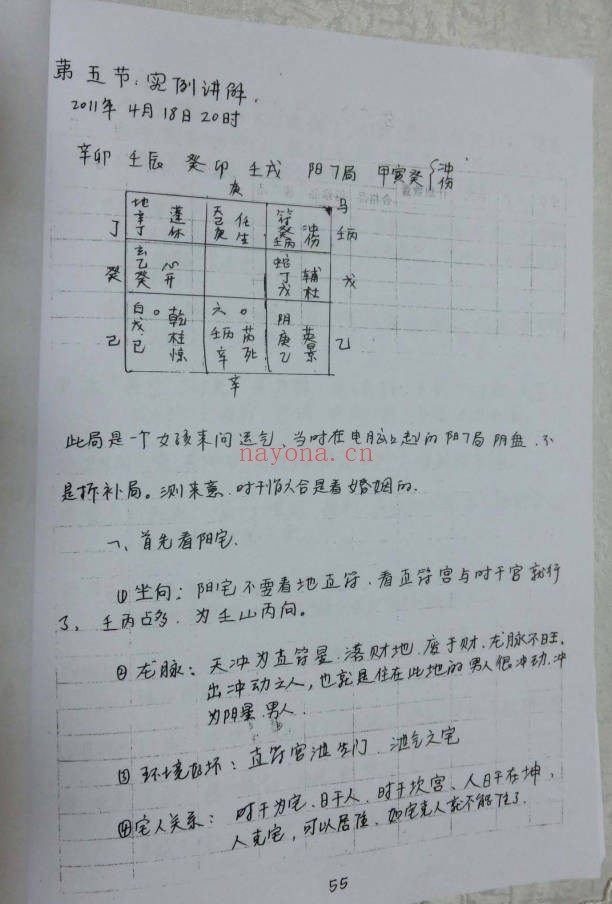 第五节：实例讲解.
2011年4月18日20时
辛卯 壬辰 癸卯 壬戌 阳7局 甲寅癸{冲伤
庚 马
丁 地辛丁 蓬休 庚 任生 符癸壬病 冲伤 壬病
癸 玄乙癸 心开 蛇丁戊 辅杜 戊
己 白戊己 乾柱惊 六壬病辛 芮死 阴庚乙 英景 乙
辛
此局是一个女孩来问运气、当时在电脑上起的阳7局阴盘.不
nayona.cn
是拆补局。测来意.时干临六合是看婚姻的.
一、首先看阳宅.
①坐向：阳宅不要看地直符.看直符宫与时干宫就行
了，壬丙占多.为壬山丙向。
②龙脉：天冲为直符星.落财地.废于财.龙脉不旺.
出冲动之人，也就是住在此地的男人很冲动.冲
为阳星.男人.
③环境好坏：直符宫泄生门.泄气之宅
④宅人关系：时干为宅.日干人.时干坎宫、人日干在坤，
人克宅，可以居住.如宅克人就不能住了.
55